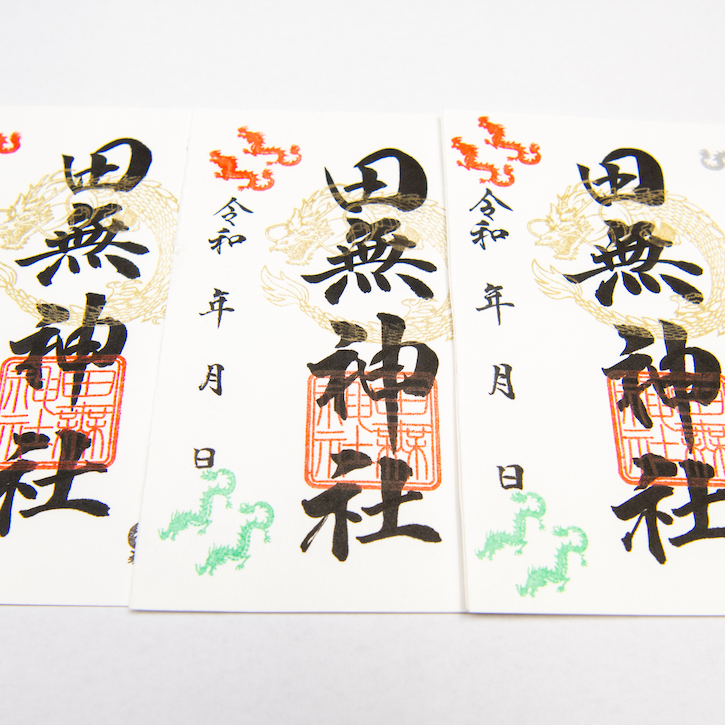 田無神社
令和 年 月 日
田無神社
令和 年 月 日
田無神社